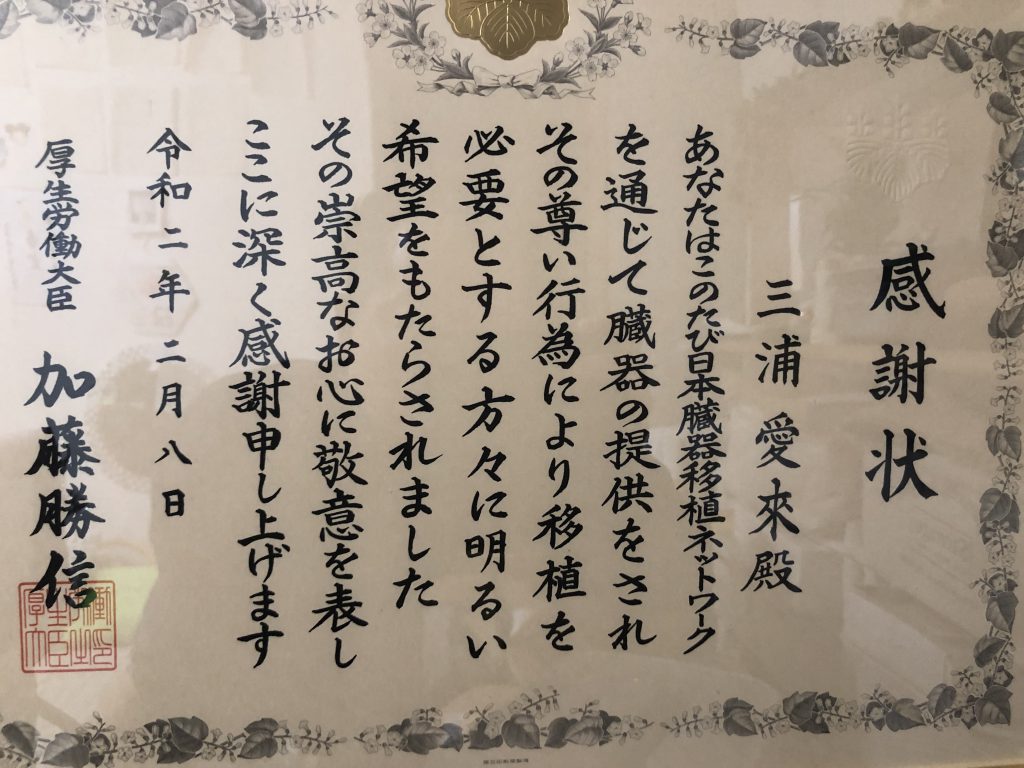 感謝状
三浦愛來殿
あなたはこのたび日本臓器移植ネットワーク
を通じて臓器の提供をされ
その尊い行為により移植を
必要とする方々に明るい
希望をもたらされました
その崇高なお心に敬意を表し
ここに深く感謝申し上げます
令和二年二月八日
厚生労働大臣 加藤勝信